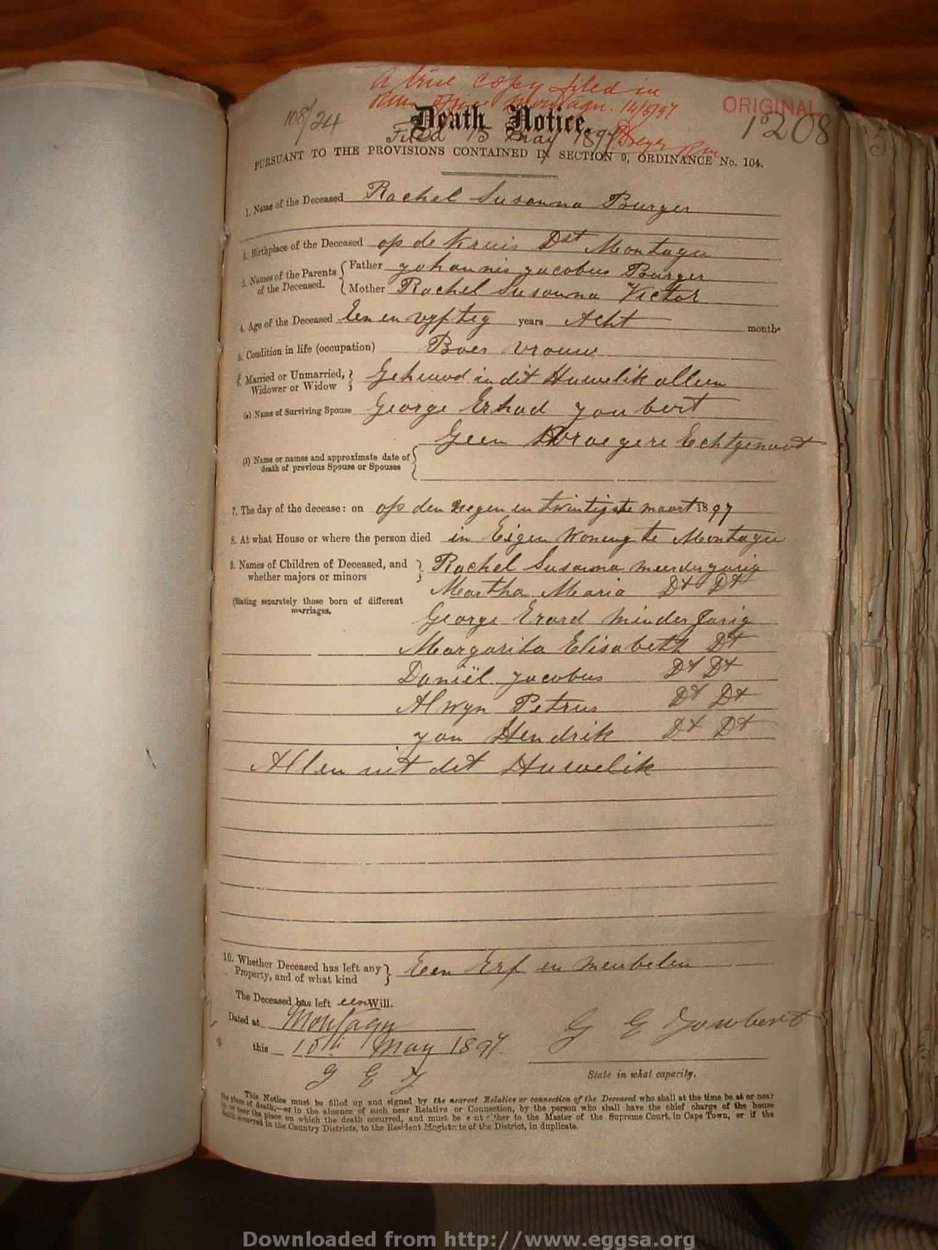 A true copy filed in
Montagu. 14/5/97
ORIGINAL
108/24
Death Notice.
1208
Filed 15 May 1897
PURSUANT TO THE PROVISIONS CONTAINED IN SECTION 9, ORDINANCE No. 104.
1. Name of the Deceased Rachel Susanna Burger
2. Birthplace of the Deceased op de Kruis Dst Montagu
3. Names of the Parents of the Deceased. Father Johannis Jacobus Burger
Mother Rachel Susanna Victor
4. Age of the Deceased Een en vyf tig years Acht months
5. Condition in life (occupation) Boer vrouw
6. Married or Unmarried, Widower or Widow Gehuwd in dit Huwelik alleen
(a) Name of Surviving Spouse George Erhad Joubert
Geen Vroegere Echtgenoot
(b) Name or names and approximate date of death of previous Spouse or Spouses
7. The day of the decease: on op den negen en twintigste maart 1897
8. At what House or where the person died in Eigen Woning te Montagu
9. Names of Children of Deceased, and whether majors or minors Rachel Susanna meerderjarig
Martha Maria Dt Dt
(Stating separately those born of different marriages.
George Erard minder Jarig
Margarita Elisabeth Dt
Daniël Jacobus Dt Dt
Alwyn Petrus Dt Dt
Jan Hendrik Dt Dt
Allen uit dit Huwelik
10. Whether Deceased has left any Property, and of what kind Een Erf en meubelen
The Deceased has left een Will.
Dated at Montagu
G E Joubert
this 10th May 1897
State in what capacity.
G E J
This Notice must be filled up and signed by the nearest Relative or connection of the Deceased who shall at the time be at or near
the place of death,—or in the absence of such near Relative or Connection, by the person who shall have the chief charge of the house
in or near the place on which the death occurred, and must be sent either to the Master of the Supreme Court, in Cape Town, or if the
death occurred in the Country Districts, to the Resident Magistrate of the District, in duplicate.
Downloaded from http://www.eggsa.org